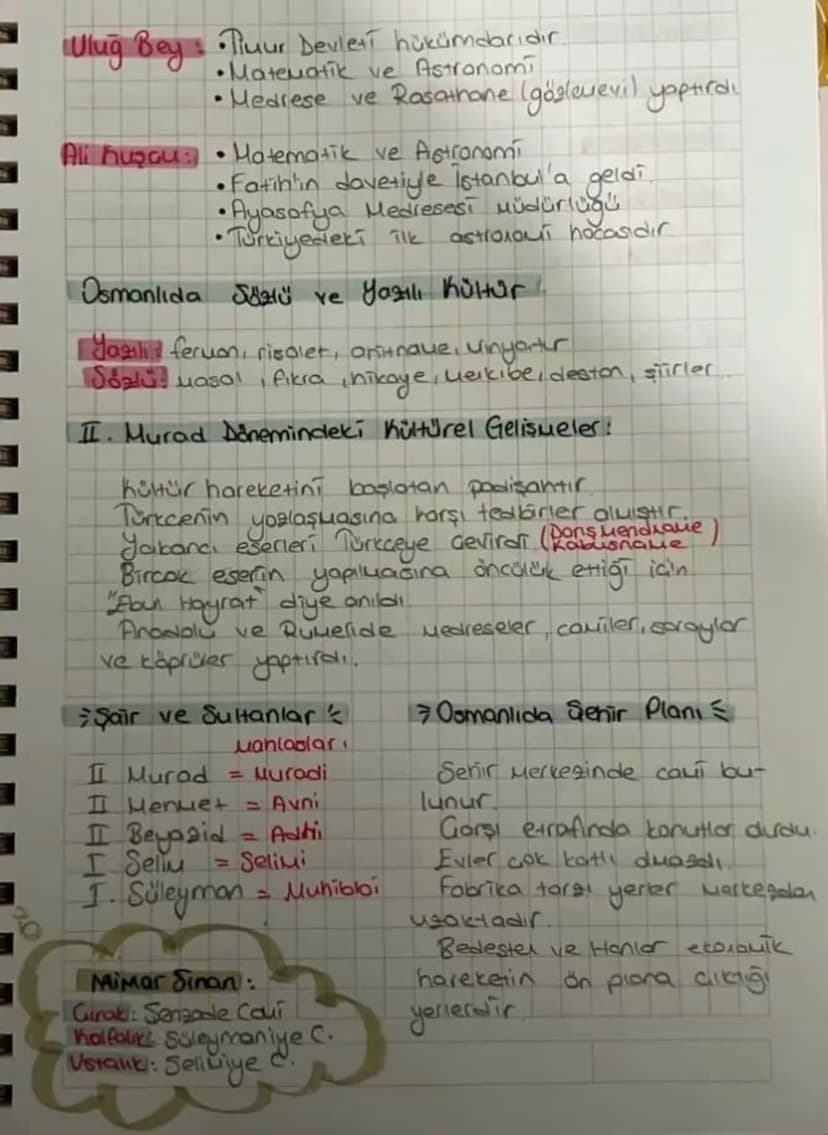 Uluğ Bey : • Timur Devleti hükümdarıdır.
• Matematik ve Astronomi
• Medrese ve Rasathane (gözlemevi) yaptırdı
Ali Kuşçu : • Matematik ve Astronomi
• Fatih'in davetiyle İstanbul'a geldi.
• Ayasofya Medresesi Müdürlüğü
• Türkiyedeki ilk astronomi hocasıdır
Osmanlıda Sözlü ve Yazılı Kültür
Yazılı : ferman, risalet, minyatür
Sözlü : masal, fıkra, hikaye, menkıbe, destan, şiirler
II. Murad Dönemindeki Kültürel Gelişmeler :
Kültür hareketini başlatan padişahtır.
Türkcenin yozlaşmasına karşı tedbirler almıştır.
Yabancı eserleri Türkceye cevirdi (Danişmendname
Kabusname)
Bircok eserin yapılmasına öncülük ettiği icin
"Ebun Hayrat" diye anıldı.
Anadolu ve Rumelide medreseler, camiler, saraylar
ve köprüler yaptırdı.
Şair ve Sultanlar
Mahlasları
II Murad = Muradi
II Mehmet = Avni
II Beyazid = Adni
I Selim = Selimi
I. Süleyman = Muhibbi
Mimar Sinan :
Cırak : Şehzade Cami
Kalfalık : Süleymaniye C.
Ustalık : Selimiye C.
Osmanlıda Şehir Planı
Şehir merkezinde cami bu-
lunur.
Çarşı etrafında konutlar durdu.
Evler cok katlı olmazdı.
Fabrika tarzı yerler merkezden
uzaktadır.
Bedesten ve Hanlar ekonomik
hareketin ön plana çıktığı
yerlerdir.
20